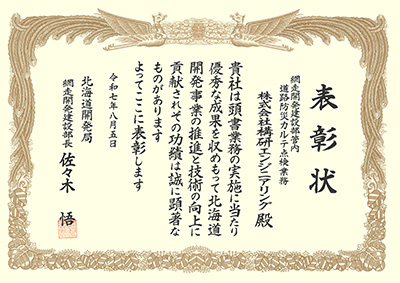 表彰状
網走開発建設部管内
道路防災カルテ点検業務
株式会社構研エンジニアリング殿
貴社は頭書業務の実施に当たり
優秀な成果を収めもって北海道
開発事業の推進と技術の向上に
貢献されその功績は誠に顕著な
ものがあります
よってここに表彰します
令和七年八月五日
北海道開発局
網走開発建設部長 佐々木 悟